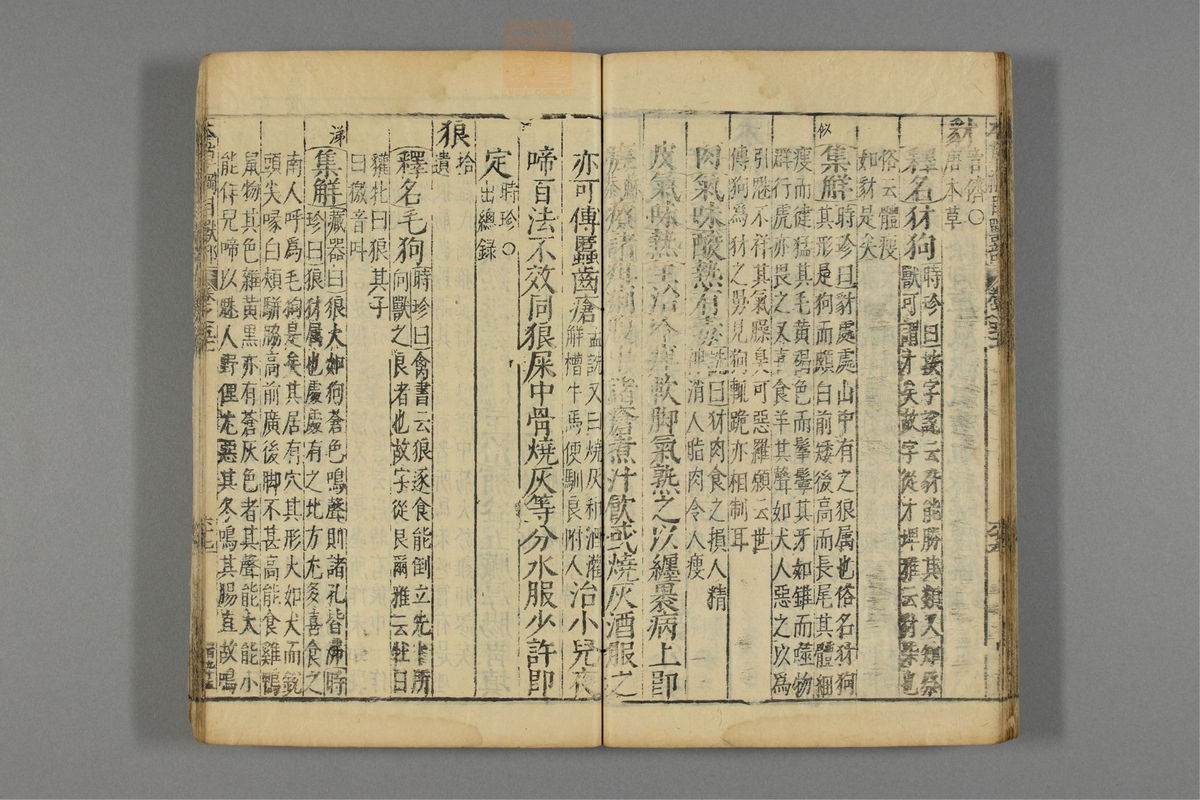 豺音儕○唐本草
釋名豺狗時珍曰按字說云豺能勝其類又知祭
獸可謂才矣故字從才埤雅云豺柴也
俗云體瘦
如豺是矣
集解時珍曰豺處處山中有之狼属也俗名豺狗
其形是狗而頗白前矮後高而長尾其體細
瘦而健猛其毛黄褐色而鬇鬡其牙如錐而噬物
群行虎亦畏之又喜食羊其聲如犬人惡之以為
引魅不祥其氣臊臭可惡羅願云世
傳狗爲豺之舅見狗輒跪亦相制耳
肉氣味酸熱有毒詵曰豺肉食之損人精
神消人脂肉令人瘦
皮氣味熱 治冷痺軟脚氣熟之以纏裹病上即
諸瘡煮汁飲或燒灰酒服之
亦可傅䘌齒瘡孟詵又曰燒灰和酒灌
解槽牛馬便馴良附人治小兒夜
啼百法不效同狼屎中骨燒灰等分水服少許即
定時珍○出總録
狼拾遺
釋名毛狗時珍曰禽書云狼逐食能倒立先卜所
向獸之良者也故字從良爾雅云牡曰
獾牝曰狼其子
曰獥音叫
集解藏器曰狼大如狗蒼色鳴聲則諸孔皆沸時
珍曰狼豺属也處處有之北方尤多喜食之
南人呼爲毛狗是矣其居有穴其形大如犬而鋭
頭尖喙白頰駢脇高前廣後脚不甚高能食雞鴨
鼠物其色雜黄黑亦有蒼灰色者其聲能大能小
能作兒啼以魅人野俚尤惡其冬鳴其腸直故鳴
似
涕